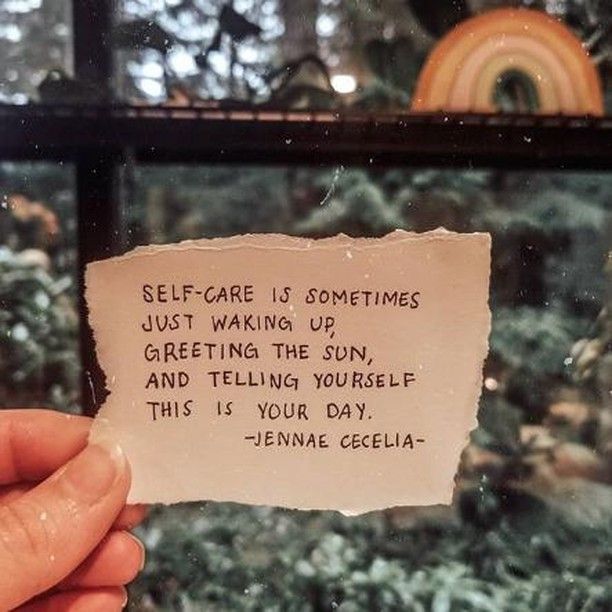 SELF-CARE IS SOMETIMES
JUST WAKING UP,
GREETING THE SUN,
AND TELLING YOURSELF
THIS IS YOUR DAY.
-JENNAE CECELIA-